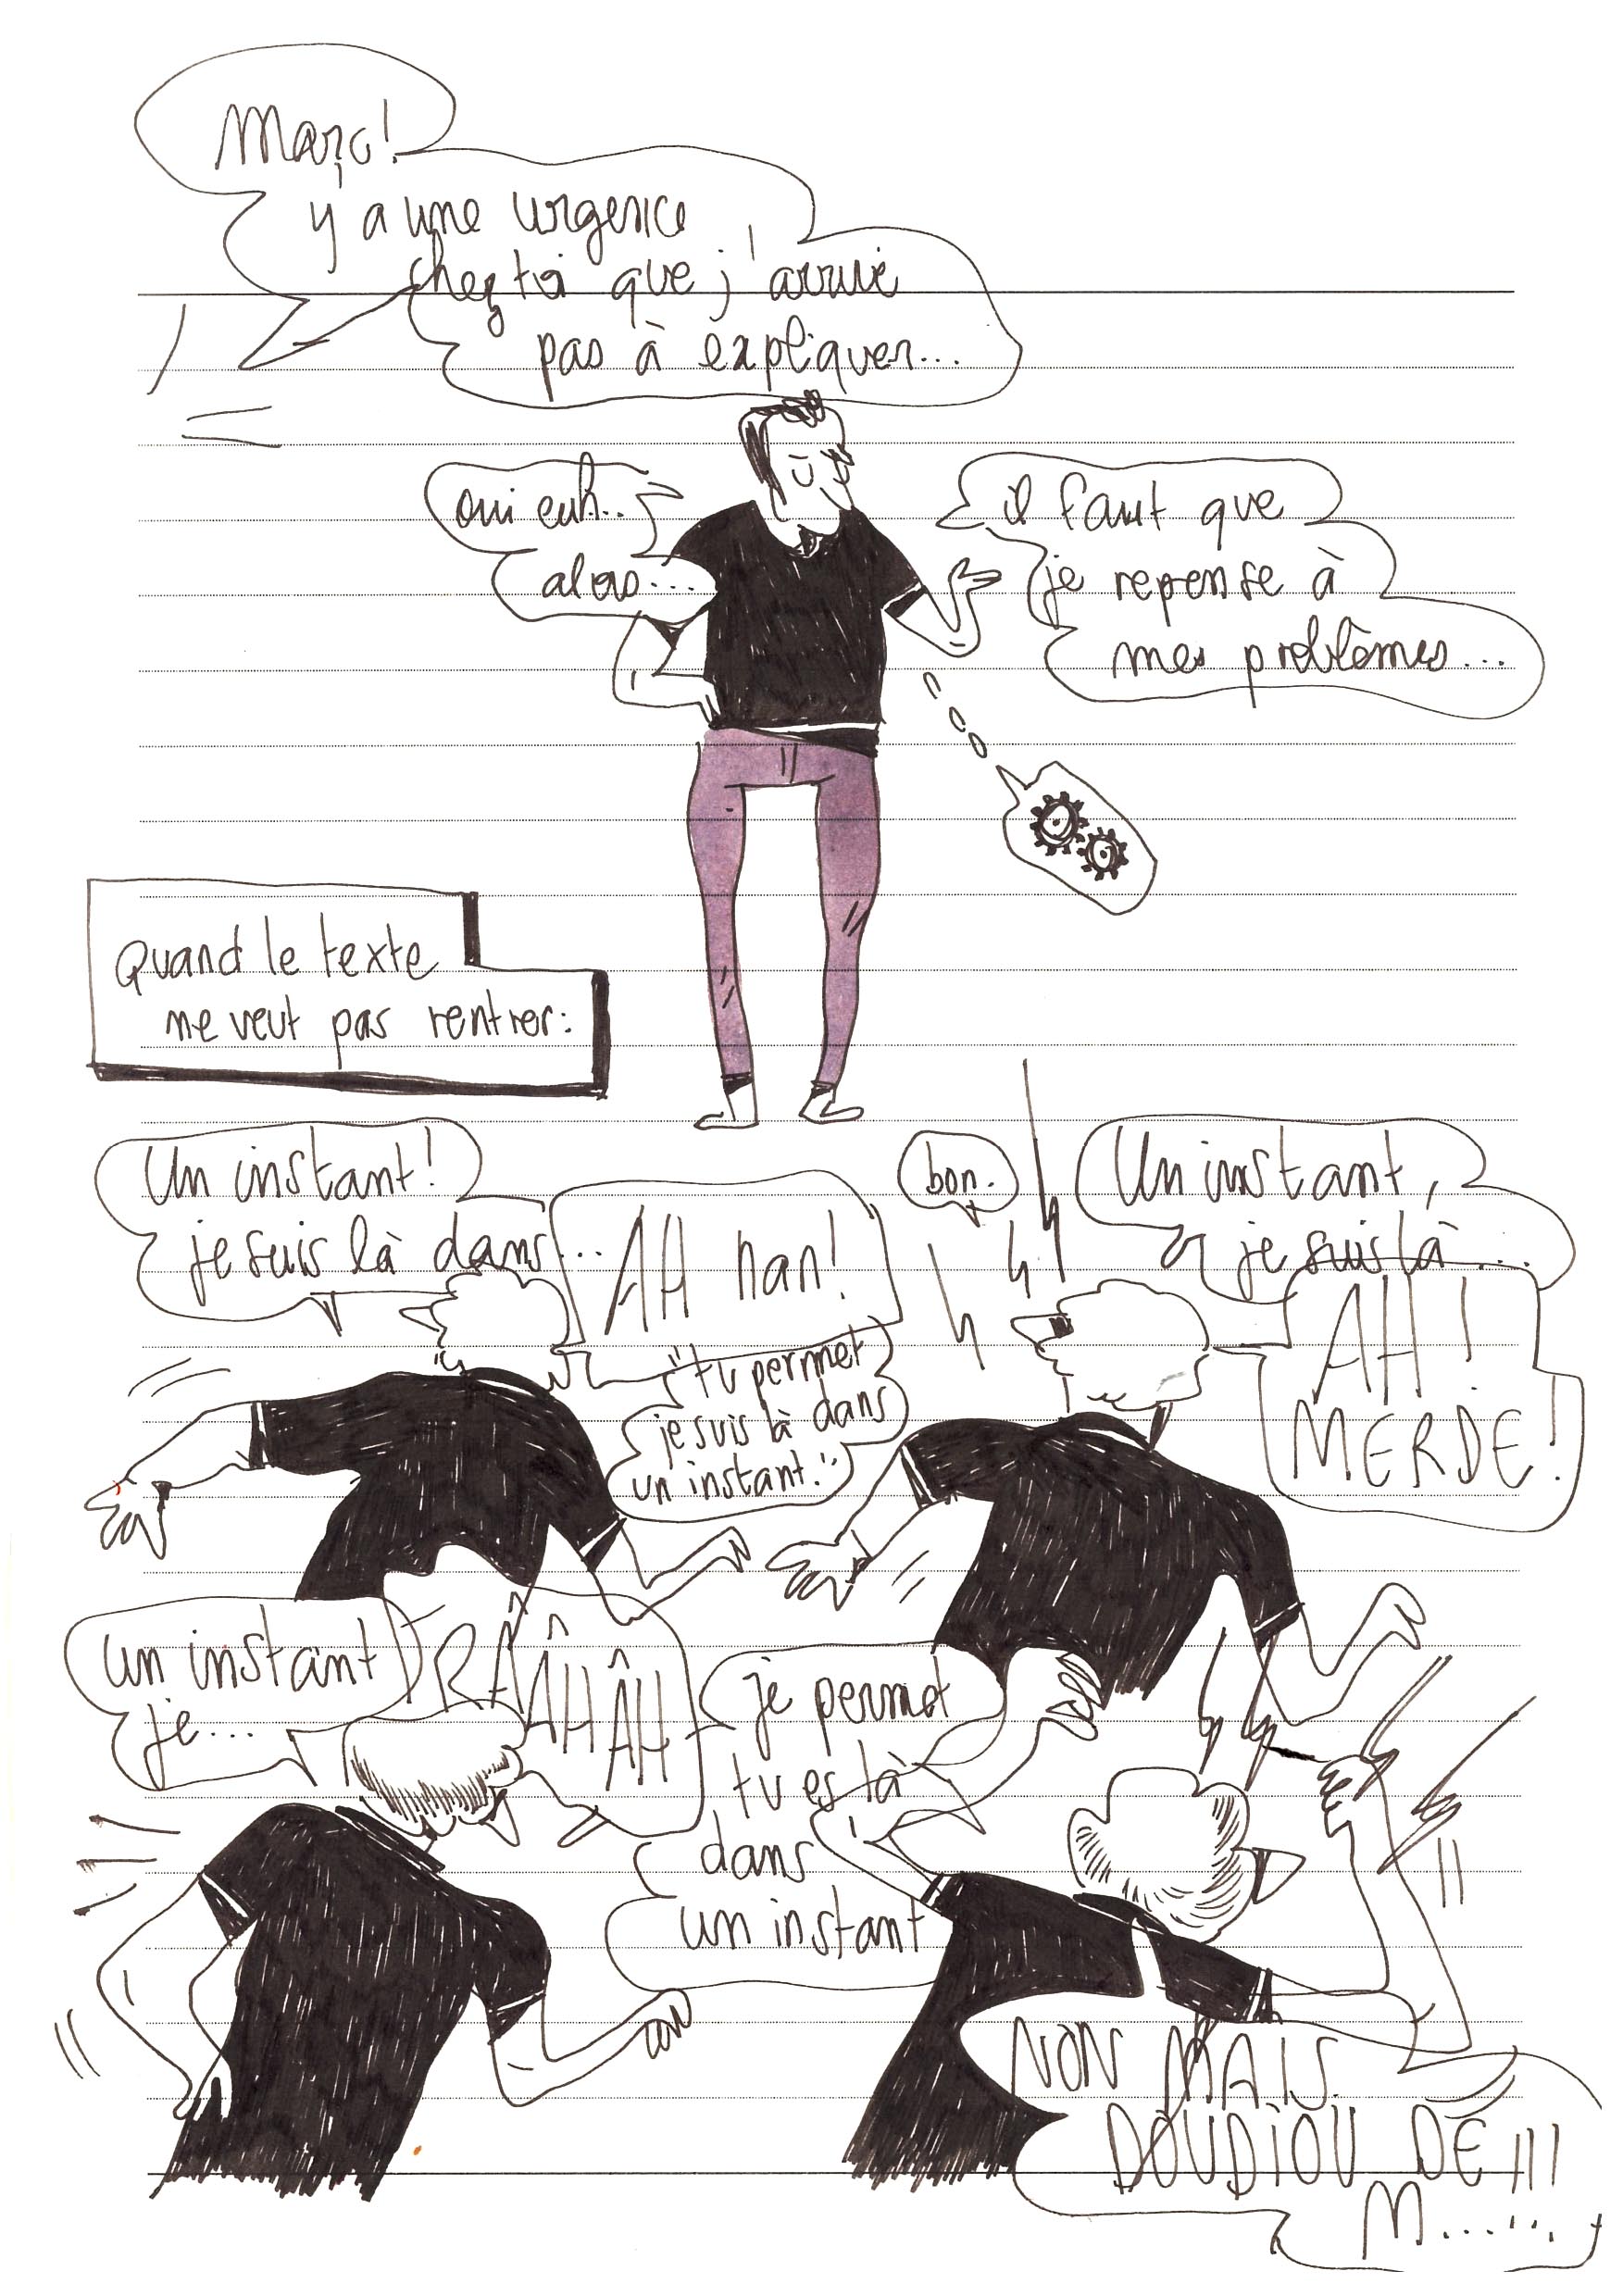 Marc!
y a une urgence
chez toi que j'arrive
pas à expliquer...
oui euh...
alors...
il faut que
je repense à
mes problèmes...
Quand le texte
ne veut pas rentrer:
Un instant!
je suis là dans...
AH nan!
"tu permet
je suis là dans
un instant."
bon.
Un instant,
je suis là...
AH!
MERDE!
un instant
je...
RÂÂÂHÂH
je permet
tu es là
dans
un instant
NON MAIS
DOUDIOU DE
M......